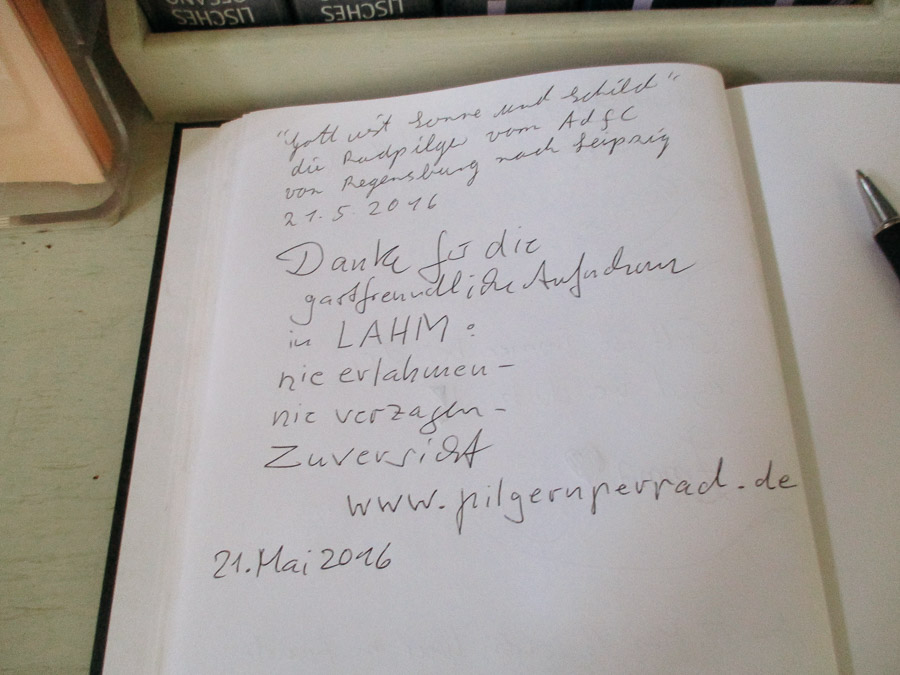 LISCHES
GESANG
LISCHES
"Gott ist Sonne und Schild"
die Radpilger vom AdfC
von Regensburg nach Leipzig
21.5.2016
Danke für die
gastfreundliche Aufnahme
in LAHM:
nie erlahmen-
nie verzagen-
Zuversicht
www.pilgernperrad.de
21.Mai 2016